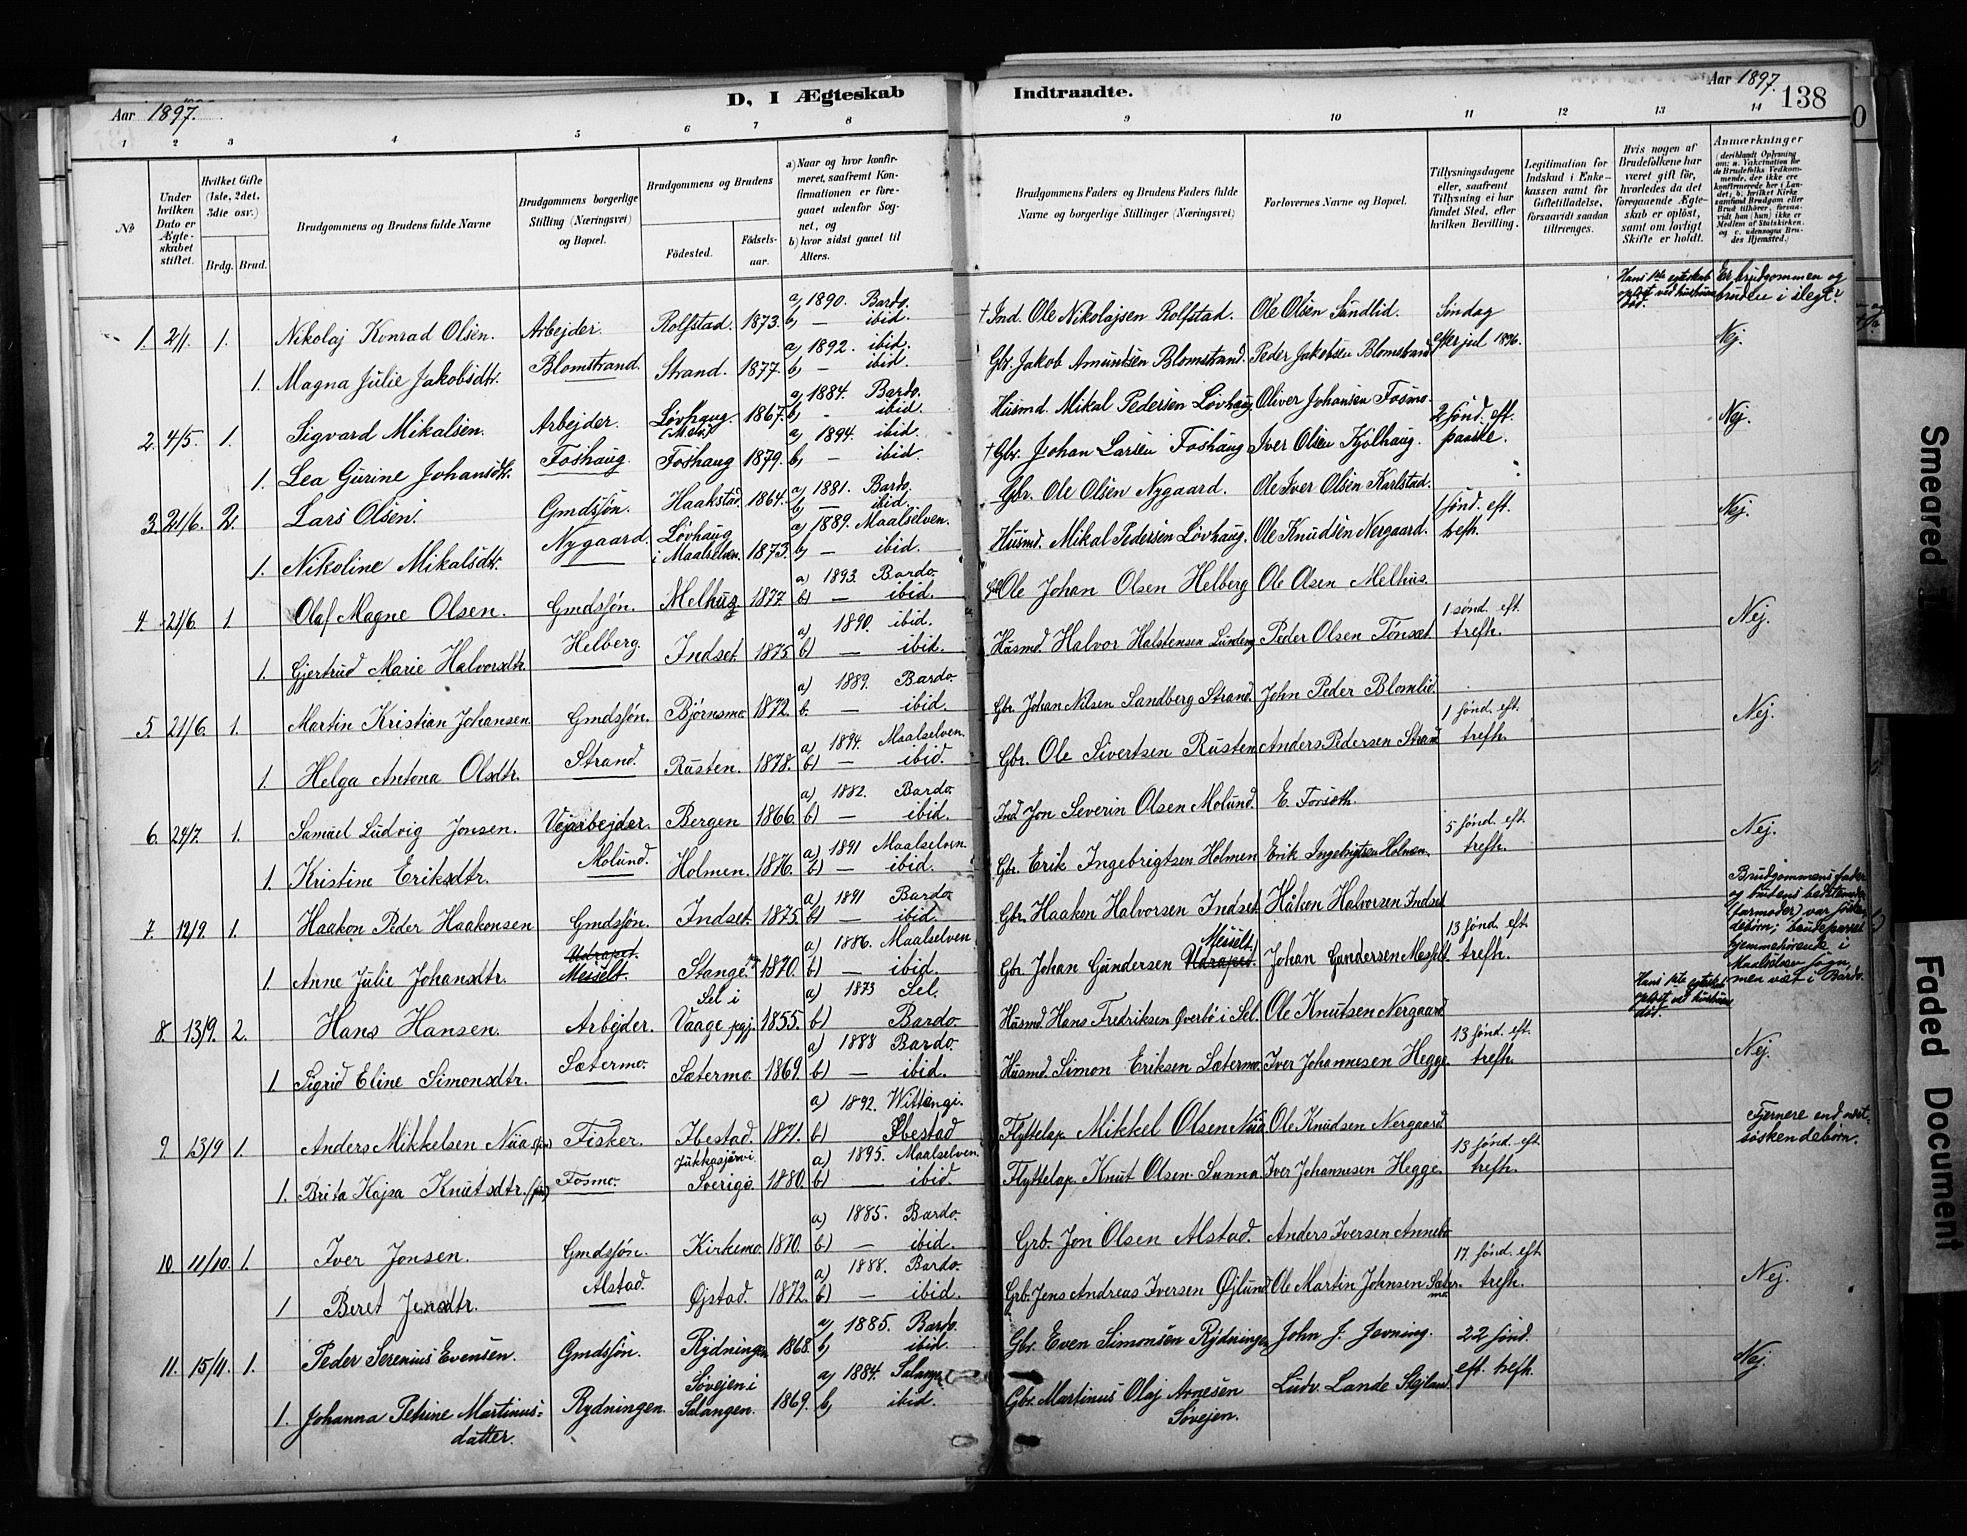 Aar 1897.
D, I Ægteskab
Indtraadte.
Aar 1897.
138
1 2 3 4 5 6 7 8 9 10 11 12 13 14
No
Under hvilken Dato er Ægteskabet stiftet.
Hvilket Gifte (1ste, 2det, 3die osv.)
Brdg. Brud.
Brudgommens og Brudens fulde Navne
Brudgommens borgerlige Stilling (Næringsvei) og Bopæl.
Brudgommens og Brudens
Födested.
Födsels-aar.
a) Naar og hvor konfirmeret, saafremt Konfirmationen er foregaaet udenfor Sognet, og
b) hvor sidst gaaet til Alters.
Brudgommens Faders og Brudens Faders fulde Navne og borgerlige Stillinger (Næringsvei)
Forlovernes Navne og Bopæl.
Tillysningsdagene eller, saafremt Tillysning ei har fundet Sted, efter hvilken Bevilling.
Legitimation for Indskud i Enkekassen samt for Giftetilladelse, forsaavidt saadan tiltrænges.
Hvis nogen af Brudefolkene har været gift för, hvorledes da det foregaaende Ægteskab er oplöst, samt om lovligt Skifte er holdt.
Anmærkninger
Er brudgommen og bruden i slegt?
1. 2/1. 1. Nikolaj Konrad Olsen. Arbejder. Rolfstad. 1873. a) 1890. Bardo. b) — ibid. † Ind. Ole Nikolajsen Rolfstad. Ole Olsen Sundlid. Søndag
1. Magna Julie Jakobsdtr. Blomstrand. Strand. 1877. a) 1892. ibid. b) — ibid. Gbr. Jakob Amundsen Blomstrand. Peder Jakobsen Blomstrand. after jul 1896. Nej.
2. 4/5. 1. Sigvard Mikalsen. Arbejder. Løvhaug. 1867. a) 1884. Bardo. b) - ibid. Husmd. Mikal Pedersen Løvhaug. Oliver Johansen Fosmo. 2 sønd. eft.
1. Lea Gurine Johansdtr. Foshaug. Foshaug 1879. a) 1894. ibid. b) — ibid. † Gbr. Johan Larsen Foshaug Iver Olsen Kjølhaug. paaske. Nej.
3. 21/6. 2. Lars Olsen. Gmdsjøn. Haakstad. 1864. a) 1881. Bardo. b) — ibid. Gbr. Ole Olsen Nygaard. Ole Iver Olsen Karlstad. 1 sønd. eft.
1. Nikoline Mikalsdtr. Nygaard. Løvhaug i Maalselven. 1873. a) 1889. Maalselven. b) — ibid. Husmd. Mikal Pedersen Løvhaug. Ole Knudsen Nergaard. trefh. Nej.
4. 21/6. 1. Olaf Magne Olsen. Gmdsjøn. Melhus 1877. a) 1893. Bardo. b) — ibid. Ole Johan Olsen Helberg Ole Olsen Melhus. 1 sønd. eft.
1. Gjertrud Marie Halvorsdtr. Helberg. Indset. 1875 a) 1890. ibid. b) — ibid. Husmd. Halvor Halstensen Lundeng Peder Olsen Tønset trefh. Nej.
5. 21/6. 1. Martin Kristian Johansen Gmdsjøn. Bjørnsmo. 1872. a) 1889. Bardo. b. — ibid. Gbr. Johan Nilsen Sandberg Strand. John Peder Blomlid. 1 sønd. eft.
1. Helga Antona Olsdtr. Strand. Rusten. 1878. a) 1894. Maalselven. b) — ibid. Gbr. Ole Sivertsen Rusten Anders Pedersen Strand trefh. Nej.
6. 24/7. 1. Samuel Ludvig Jonsen. Vejarbejder. Bergen 1866. a) 1882. Bardo. b) — ibid. Ind. Jon Severin Olsen Molund. E. Forseth. 5 sønd. eft.
1. Kristine Eriksdtr. Molund. Holmen. 1876. a) 1891 Maalselven b) — ibid. Gbr. Erik Ingebrigtsen Holmen Erik Ingebrigtsen Holmen. trefh. Nej.
7. 12/9. 1. Haakon Peder Haakonsen Gmdsjøn. Indset. 1875. a) 1891 Bardo. b) — ibid. Gbr. Haaken Halvorsen Indset Håken Halvorsen Indset 13 sønd. eft
1 Anne Julie Johansdtr. Udrapet. Messelt. Stange. 1870. a) 1886. Maalselven b) — ibid. Gbr. Johan Gundersen Udrapet. Messelt. Johan Gundersen Messelt trefh. Brudgommens fader og brudens bedstemoder (farmoder) var søskendebørn; brudeparret hjemmehørende i Maalselven sogn, men viet i Bardo.
8. 13/9. 2. Hans Hansen. Arbejder. Sel i Vaage pgj. 1855. a) 1873 Sel. b) Bardo. Husmd. Hans Fredriksen Øverbø i Sel. Ole Knutsen Nergaard 13 sønd. eft. Hans 1ste egteskab opløst ved hustruens død.
1 Sigrid Eline Simonsdtr. Sætermo. Sætermo. 1869. a) 1888 Bardo. b) — ibid. Husmd. Simon Eriksen Sætermo. Iver Johannesen Hegge. trefh. Nej.
9 13/9 1. Anders Mikkelsen Nua Fisker. Ibestad. 1871. a) 1892. Wittangi. b) Ibestad Flyttelap. Mikkel Olsen Nua. Ole Knudsen Nergaard 13 sønd. eft. Fjernere end næstsøskendebørn.
1. Brita Kajsa Knutsdtr. Fosmo. Jukkasjærvi Sverige. 1880. a) 1895. Maalselven. b) — ibid. Flyttelap. Knut Olsen Sunna. Iver Johannesen Hegge. trefh.
10. 11/10. 1. Iver Jonsen. Gmdsjøn. Kirkemo. 1870. a) 1885. Bardo. b) — ibid. Grb. Jon Olsen Alstad. Anders Iversen 17 sønd. eft.
1 Beret Jensdtr. Alstad. Øjstad. 1872. a) 1888. Bardo. b) — ibid. Grb. Jens Andreas Iversen Øjlund. Ole Martin Johnsen Sætermo trefh. Nej.
11. 15/11. 1. Peder Serenius Evensen. Gmdsjøn. Rydningen 1868. a) 1885. Bardo. b) ibid. Gbr. Even Simonsen Rydningen John J. Jevning. 22 sønd.
1. Johanna Petrine Martinusdatter. Rydningen. Søvejen i Salangen. 1869. a) 1884. b) ibid. Gbr. Martinus Olaj Arnesen Søvejen. Ludv. Lande eft. trefh. Nej.
Smeared
Faded Document